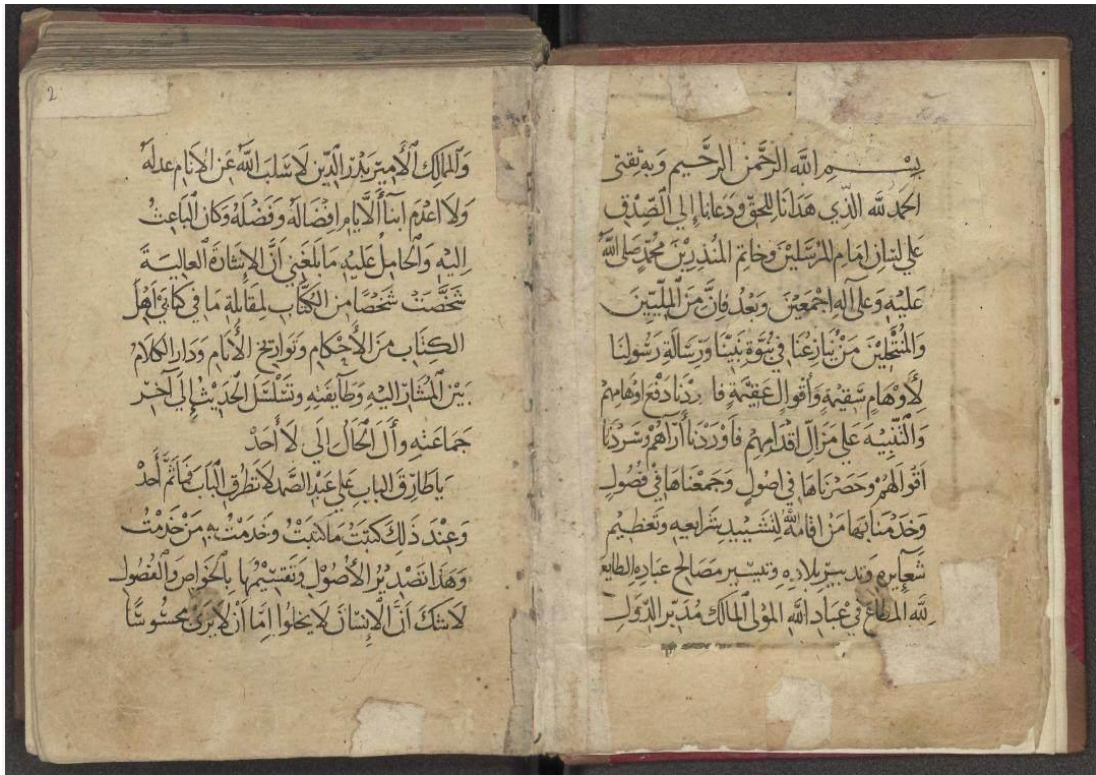 بسم الله الرحمن الرحيم وبه ثقتي
الحمد لله الذي هدانا للحق ودعانا إلى الصدق
على لسان إمام المرسلين وخاتم المنذرين محمد صلى الله
عليه وعلى آله اجمعين وبعد فإن من المليين
والمنتحلين من ينازعنا في نبوة نبينا ورسالة رسولنا
لأوهام سقيمة وأقوال عقيمة فأردنا دفع اوهامهم
والتنبيه على مزال اقدامهم فأوردنا أراهم وسردنا
اقوالهم وحصرناها في اصول وجمعناها في فصول
وخدمنا بها من اقامه الله لتشييد شرايعه وتعظيم
شعايره وتدبير بلاده وتيسير مصالح عباده الطايع
لله المطاع في عباد الله المولى المالك مدبر الدول
2
والممالك الأمير بدر الدين لا سلب الله عن الأنام عدله
ولا اعدم ابنأ الأيام افضاله وفضله وكان الباعث
اليه والحامل عليه ما بلغني أن الإشارة العالية
شخصت شخصا من الكتاب لمقابلة ما في كتابي أهل
الكتاب من الأحكام وتواريخ الأنام ودار الكلام
بين المشار إليه وطايفته وتسلسل الحديث إلى آخر
جماعته وأل الحال إلى لا أحد
يا طارق الباب على عبد الصمد لا تطرق الباب فما ثم أحد
وعند ذلك كتبت ما كتبت وخدمت به من خدمت
وهذا تصدير الأصول وتقسيمها بالخواص والفصول
لا شك أن الإنسان لا يخلوا اما أن لا يرى محسوسا